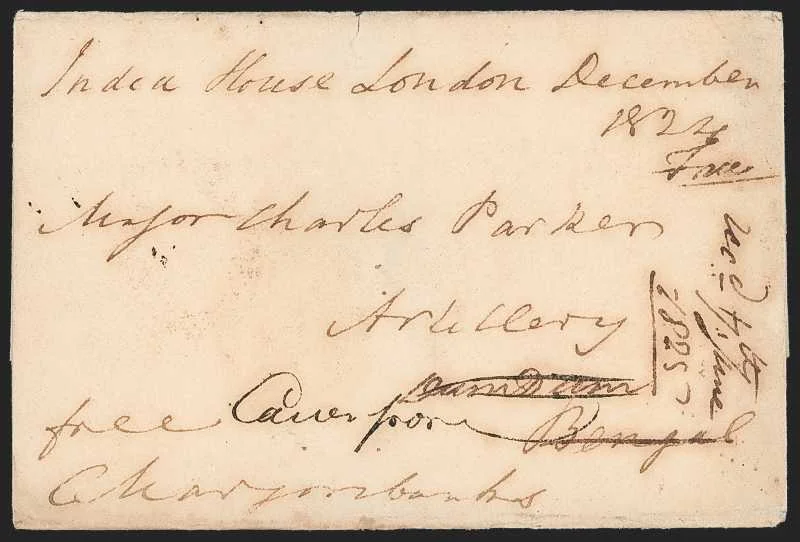 India House London December
1824
Free
Major Charles Parker
Artillery
Dum Dum
Bengal
Cawnpore
free
CMarjoribanks
recd 4th June
1825